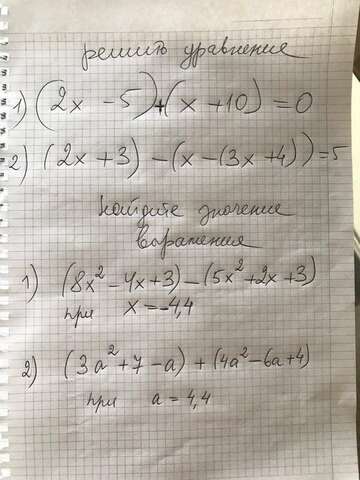 решить уравнение
1) (2x - 5) + (x + 10) = 0
2) (2x + 3) - (x - (3x + 4)) = 5
найдите значение
выражения
1) (8x² - 4x + 3) - (5x² + 2x + 3)
при x = -4,4
2) (3a² + 7 - a) + (4a² - 6a + 4)
при a = 4,4